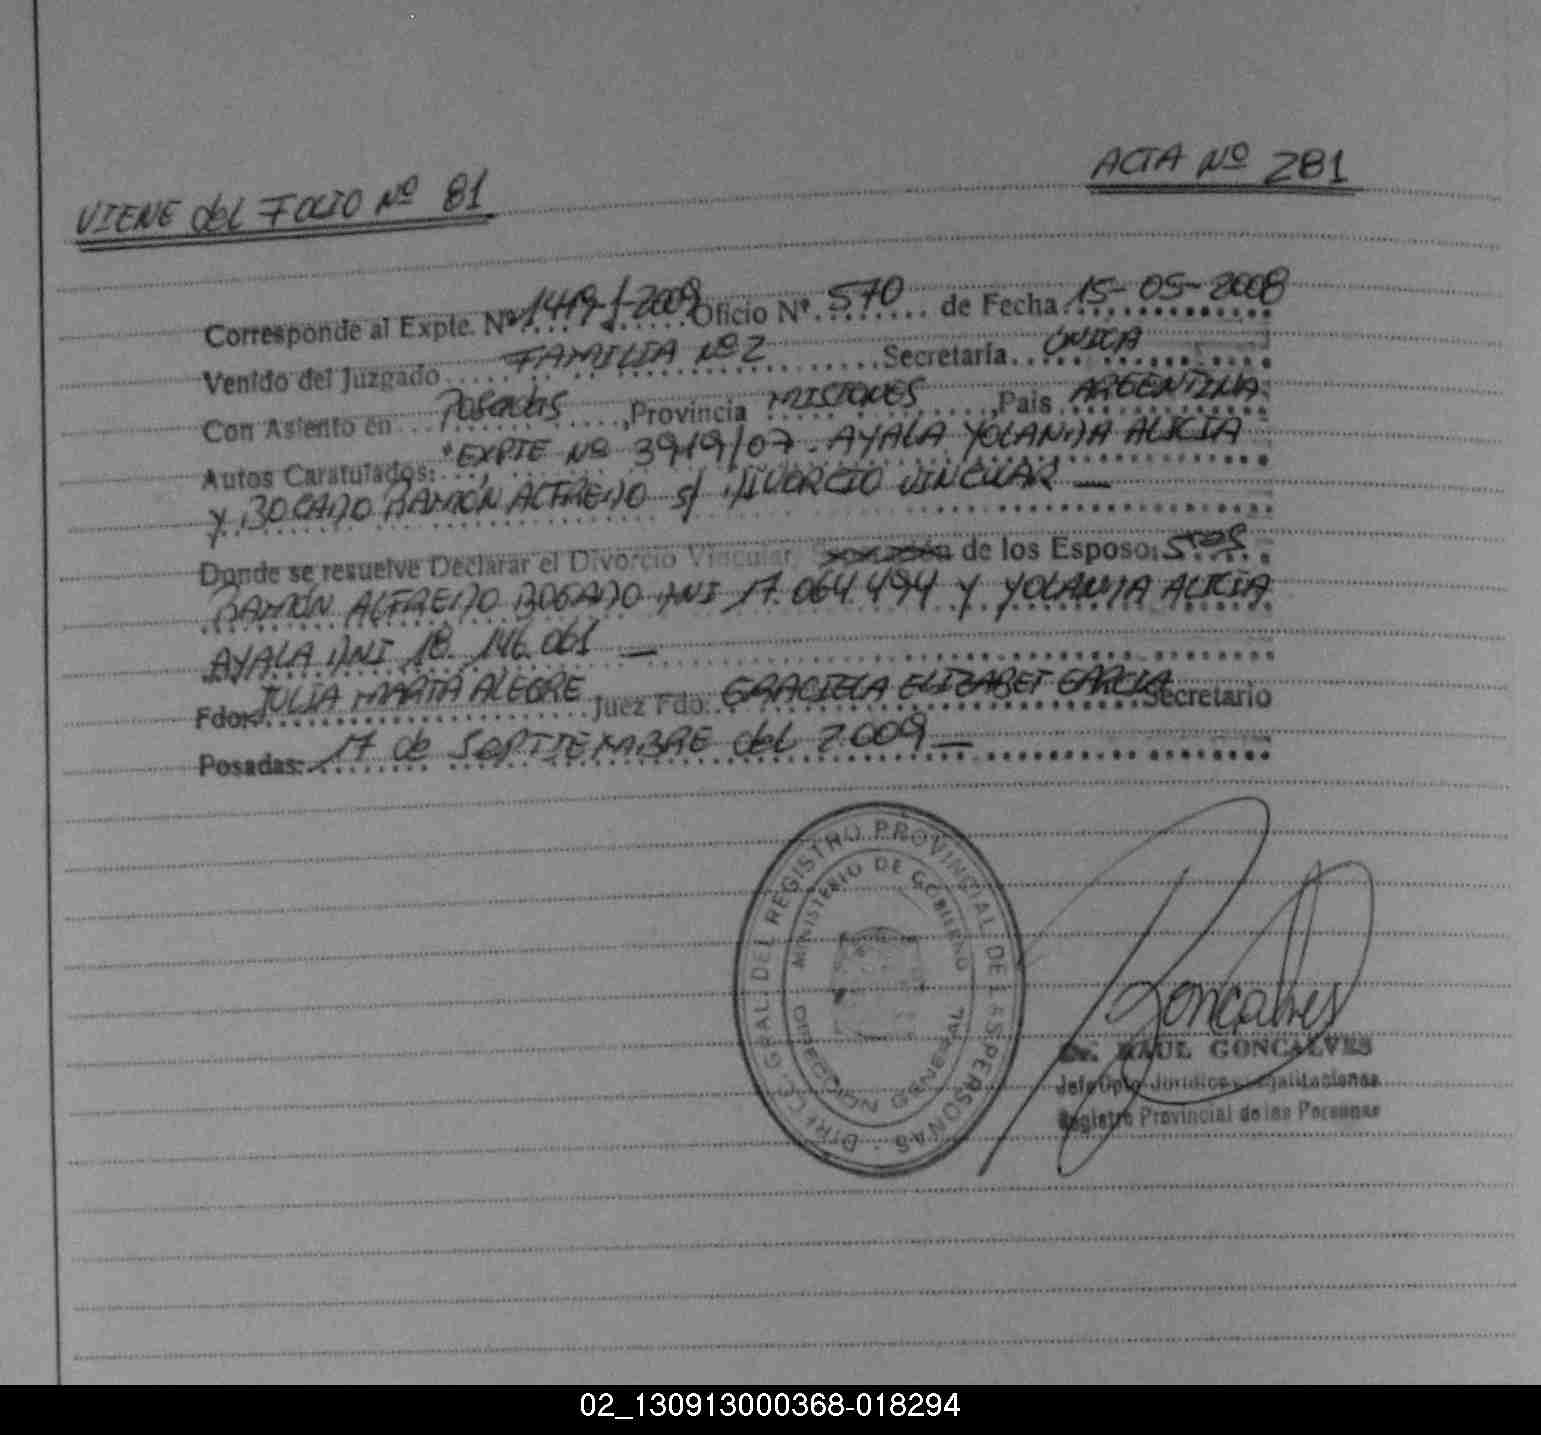 VIENE del FOLIO Nº 81
ACTA Nº 281
Corresponde al Expte. Nº 1419-J-2009 Oficio Nº 570 de Fecha 15-05-2008
Venido del Juzgado FAMILIA Nº 2 Secretaría ÚNICA
Con Asiento en Posadas, Provincia MISIONES, País ARGENTINA
Autos Caratulados: "EXPTE Nº 3919/07. AYALA YOLANDA ALICIA
y BOGADO RAMÓN ALFREDO s/ DIVORCIO VINCULAR —
Donde se resuelve Declarar el Divorcio Vincular, de los Esposo: SRES
RAMÓN ALFREDO BOGADO DNI 17.064.494 Y YOLANDA ALICIA
AYALA DNI 18.146.061 —
Fdo: JULIA MARTA ALEGRE Juez Fdo: GRACIELA ELIZABET GARCIA Secretario
Posadas: 17 de SEPTIEMBRE del 2.009 —
DIREC. GRAL. DEL REGISTRO PROVINCIAL DE LAS PERSONAS
MINISTERIO DE GOBIERNO
DIRECCION GENERAL
Goncalves
Dr. RAUL GONCALVES
Jefe Dpto. Jurídico
Registro Provincial de las Personas
02_130913000368-018294